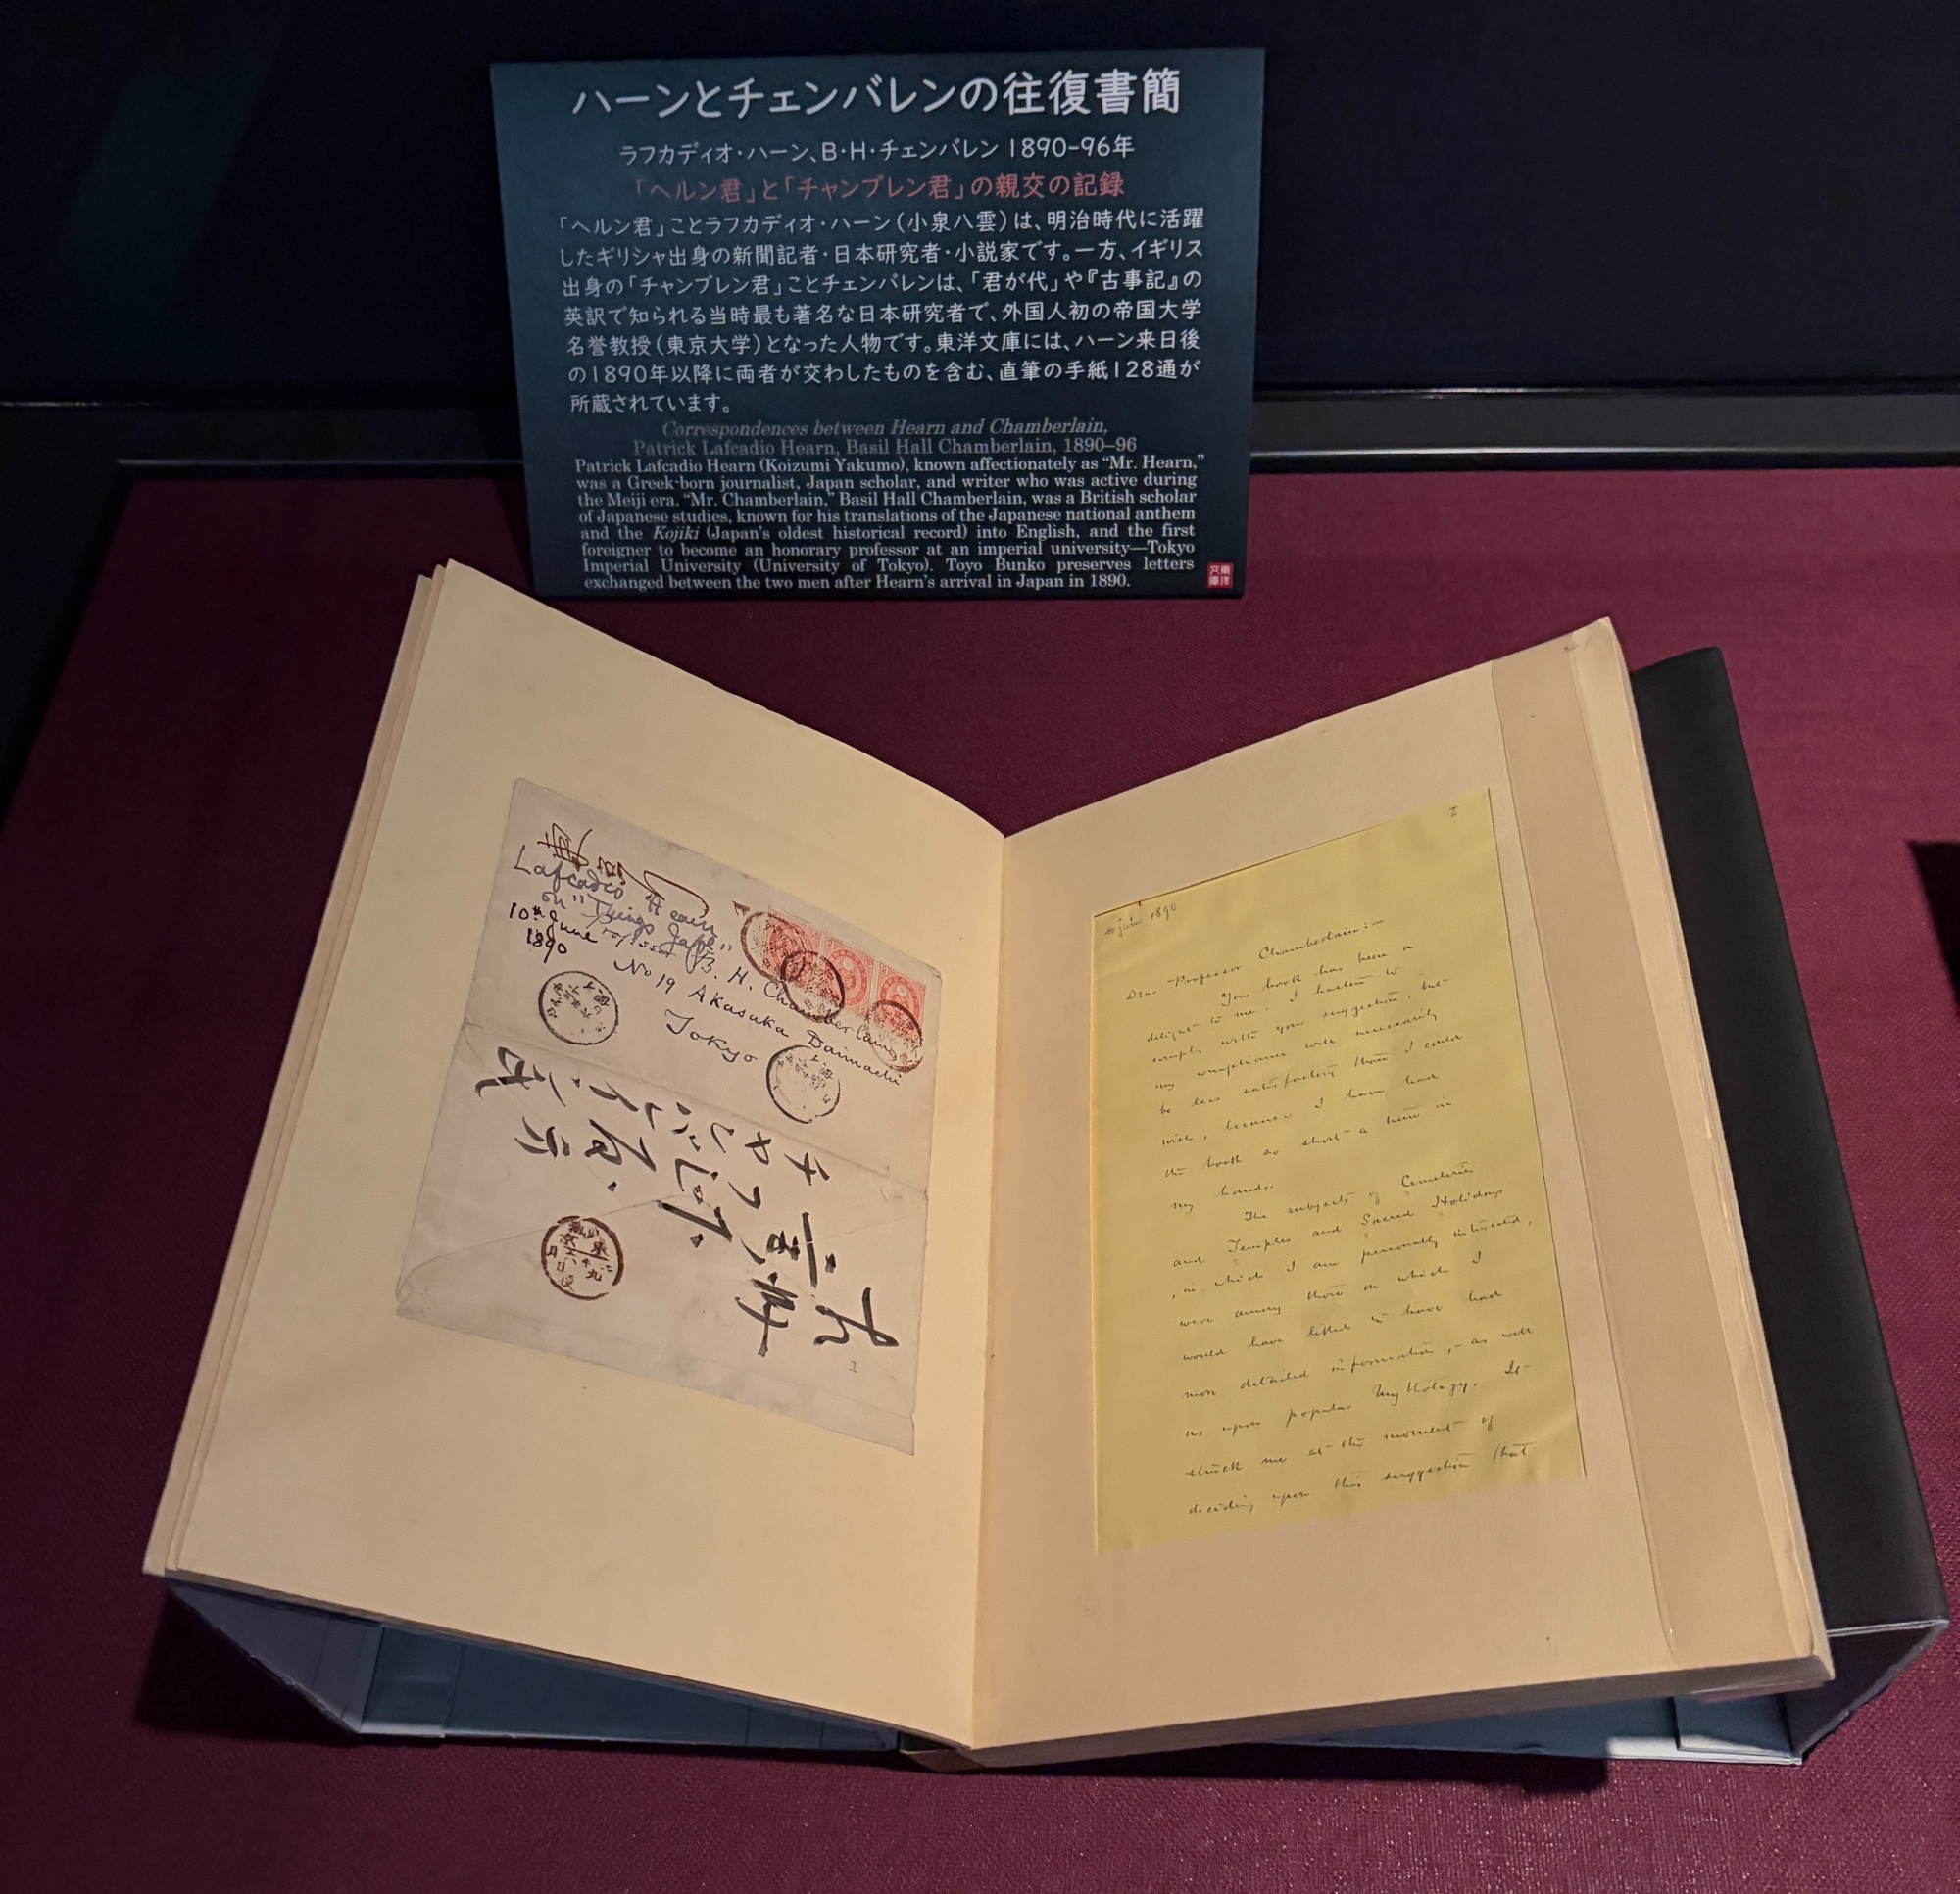 ハーンとチェンバレンの往復書簡
ラフカディオ・ハーン、B・H・チェンバレン 1890-96年
「ヘルン君」と「チャンブレン君」の親交の記録
「ヘルン君」ことラフカディオ・ハーン(小泉八雲)は、明治時代に活躍
したギリシャ出身の新聞記者・日本研究者・小説家です。一方、イギリス
出身の「チャンブレン君」ことチェンバレンは、「君が代」や『古事記』の
英訳で知られる当時最も著名な日本研究者で、外国人初の帝国大学
名誉教授(東京大学)となった人物です。東洋文庫には、ハーン来日後
の1890年以降に両者が交わしたものを含む、直筆の手紙128通が
所蔵されています。
Correspondences between Hearn and Chamberlain,
Patrick Lafcadio Hearn, Basil Hall Chamberlain, 1890–96
Patrick Lafcadio Hearn (Koizumi Yakumo), known affectionately as “Mr. Hearn,”
was a Greek-born journalist, Japan scholar, and writer who was active during
the Meiji era. “Mr. Chamberlain,” Basil Hall Chamberlain, was a British scholar
of Japanese studies, known for his translations of the Japanese national anthem
and the Kojiki (Japan's oldest historical record) into English, and the first
foreigner to become an honorary professor at an imperial university—Tokyo
Imperial University (University of Tokyo). Toyo Bunko preserves letters
exchanged between the two men after Hearn's arrival in Japan in 1890.
東洋文庫
Lafcadio Hearn
on "Things Jap"
10th June
1890
Professor B. H. Chamberlain
No 19 Akasuka Daimachi
Tokyo
I
10 juin 1890
Dear Professor Chamberlain:—
Your book has been a
delight to me. I hasten to
comply with your suggestion, but
my compliance will necessarily
be less satisfactory than I could
wish, because I have had
the book so short a time in
my hands.
The subjects of Cemeteries
and Temples and Sacred Holidays
in which I am personally interested,
were among those on which I
would have liked to have had
more detailed information,—as well
as upon popular Mythology. It
struck me at the moment of
deciding upon this suggestion that